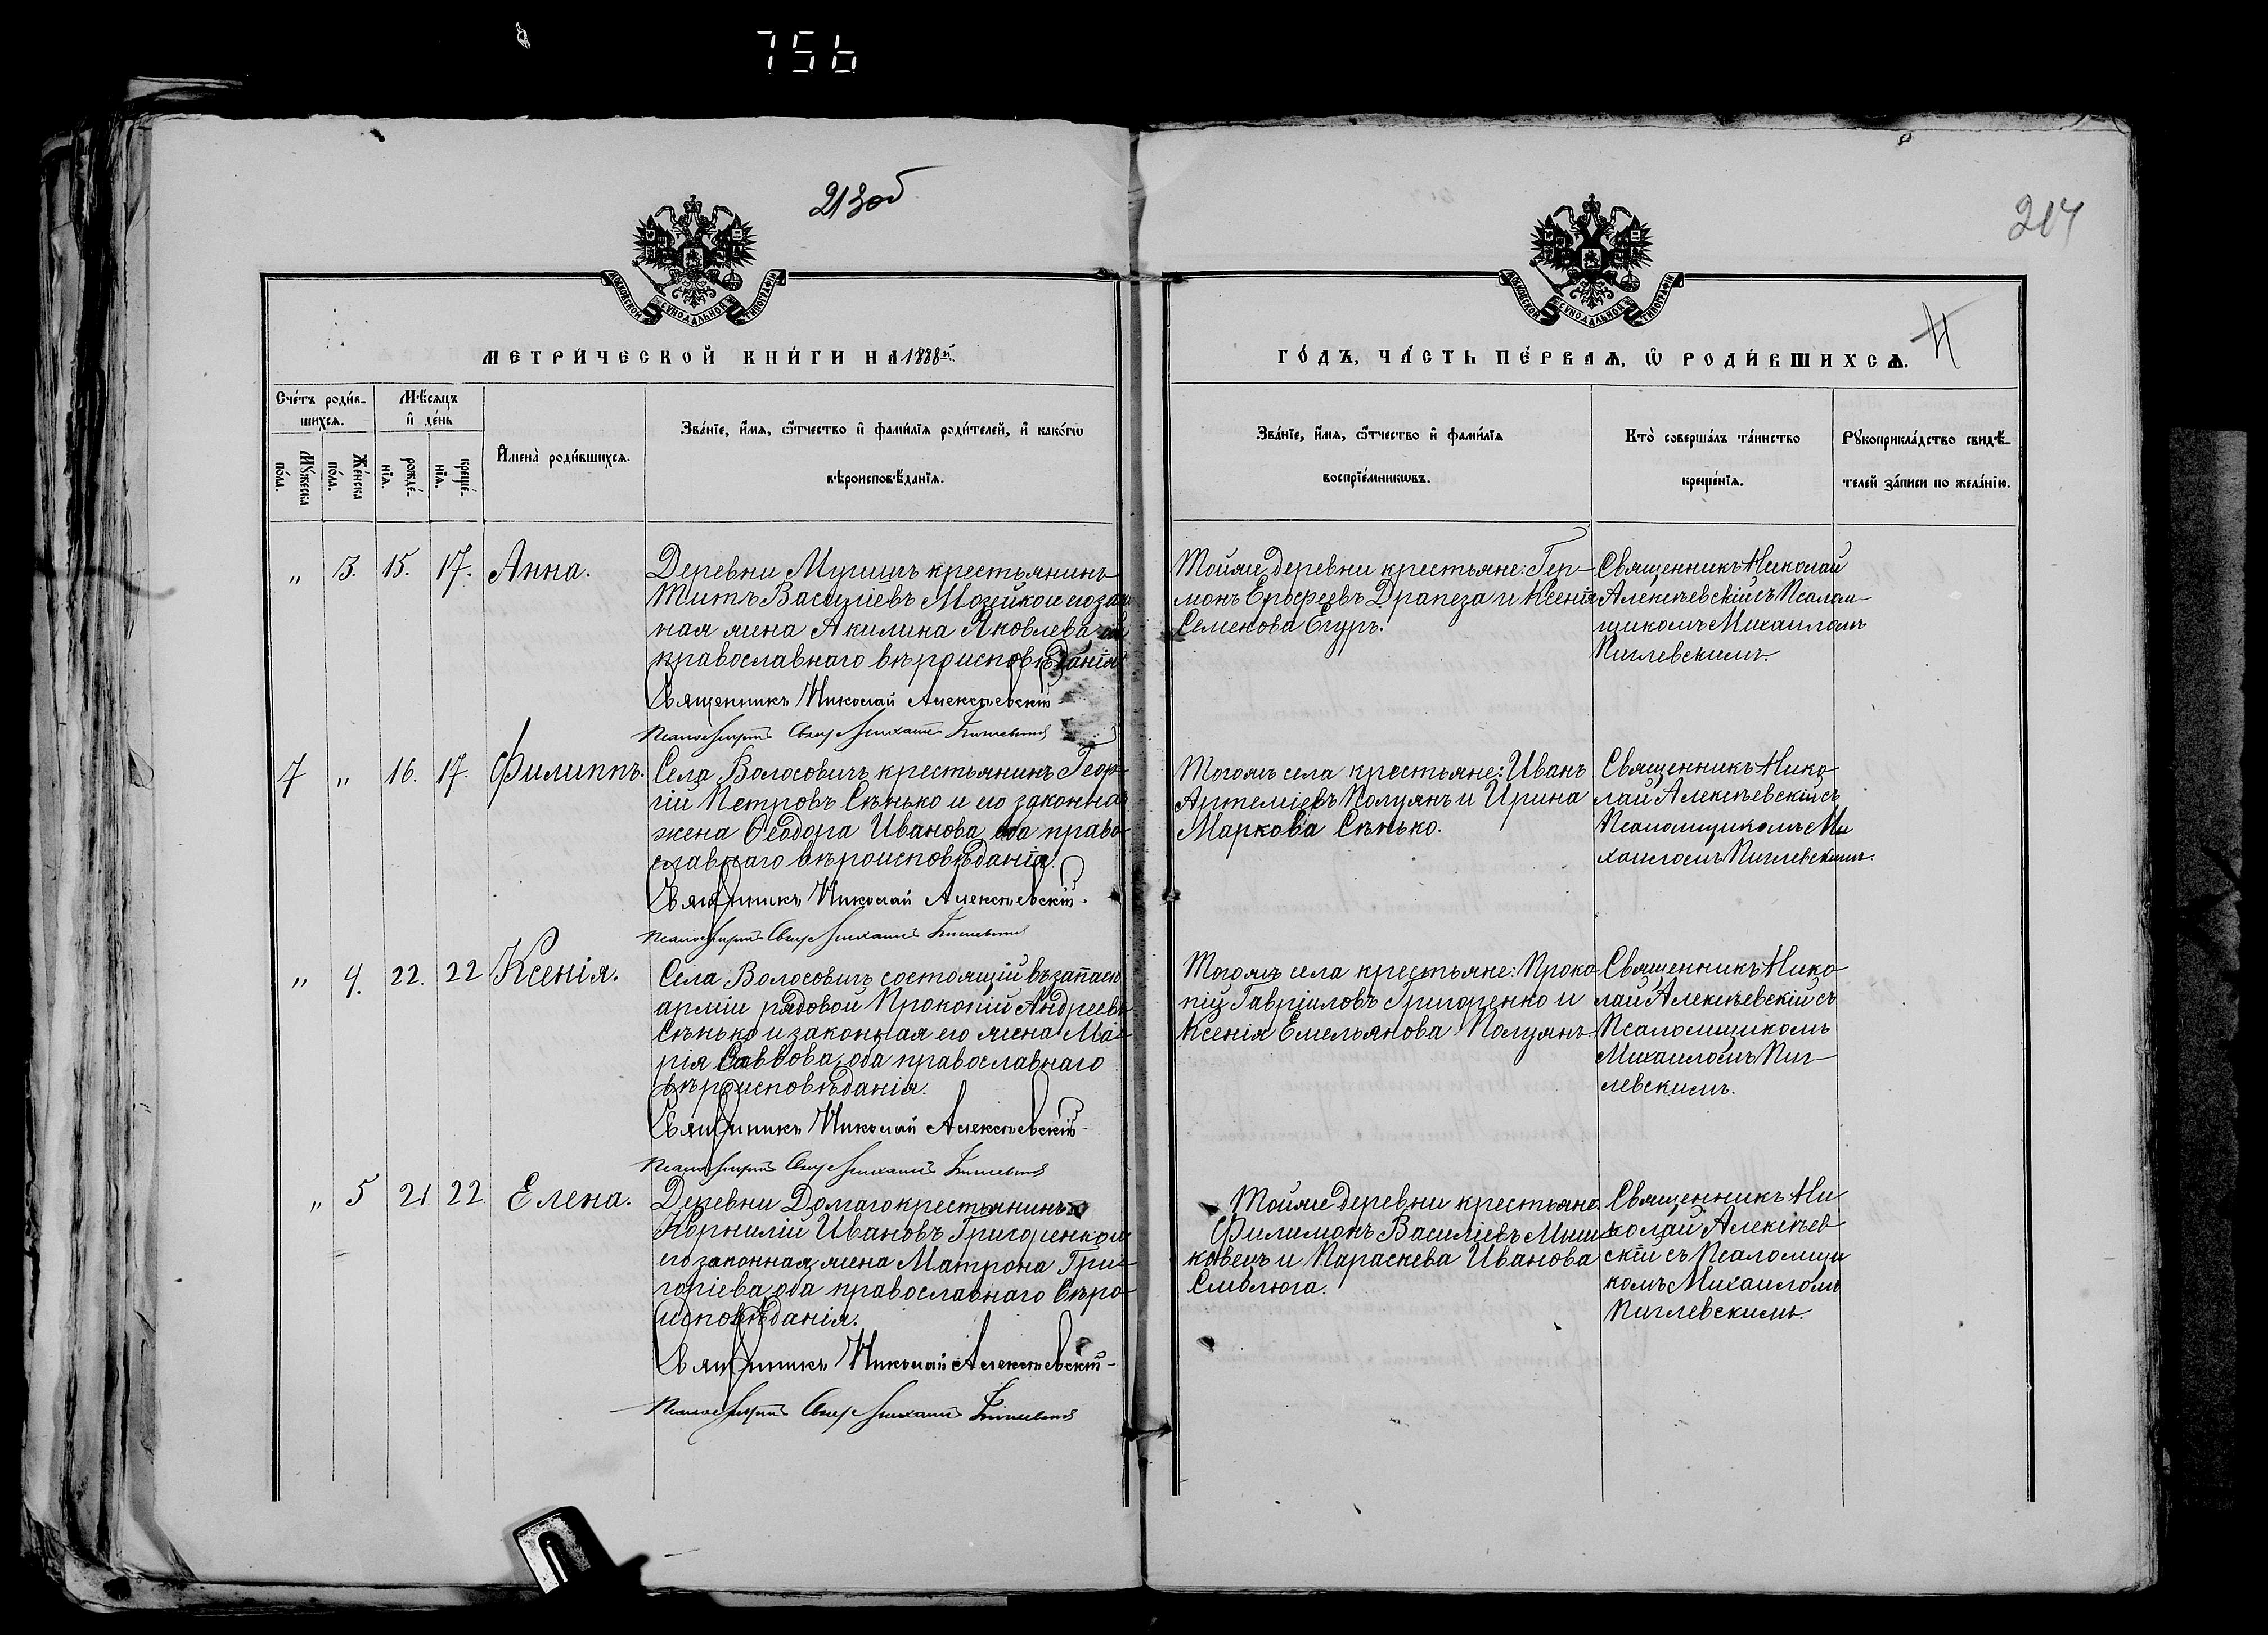 756
213об
214
МОСКОВСКОЙ СѴНОДАЛЬНОЙ ТИПОГРАФІИ
МОСКОВСКОЙ СѴНОДАЛЬНОЙ ТИПОГРАФІИ
МЕТРИ́ЧЕСКОЙ КНИ́ГИ НА 1888й
ГО́ДЪ, ЧА́СТЬ ПЕ́РВАѦ, Ѡ РОДИ́ВШИХСѦ.
Н
Сче́тъ роди́в-
шихсѧ.
Мѣ́сѧцъ
и҆ де́нь
Мꙋ́жеска
по́ла.
Же́нска
по́ла.
рожде́-
нїѧ.
креще́-
нїѧ.
И҆мена̀ роди́вшихсѧ.
Зва́нїе, и҆́мѧ, ѻ҆́тчество и҆ фамї́лїѧ роди́телей, и҆ како́гѡ
вѣроисповѣ́данїѧ.
Зва́нїе, и҆́мѧ, ѻ҆́тчество и҆ фамї́лїѧ
воспрїе́мникѡвъ.
Кто̀ соверша́лъ та́инство
креще́нїѧ.
Рꙋкоприкла́дство свидѣ́-
телей за́писи по жела́нїю.
„ 3. 15. 17. Анна.
Деревни крестьянинъ
Титъ Василіевъ Мозейко и его закон
ная жена Акилина Яковлева оба
православнаго вѣроисповѣданія
Священникъ Николай Алексѣевскій
Псаломщикъ Михаилъ
Тойже деревни крестьяне: Гер-
монъ Ерофеевъ Драпеза и Ксенія
Семенова Егуръ.
Священникъ Николай
Алексѣевскій съ Псалом-
щикомъ Михаиломъ
Пиглевскимъ.
7 „ 16. 17. Филиппъ.
Села Волосовичъ крестьянинъ Геор-
гій Петровъ Сѣнько и его законная
жена Ѳеодора Иванова, оба право-
славнаго вѣроисповѣданія.
Священникъ Николай Алексѣевскій.
Псаломщикъ Михаилъ
Тогожъ села крестьяне: Иванъ
Артеміевъ Полуянъ и Ирина
Маркова Сѣнько.
Священникъ Нико-
лай Алексѣевскій съ
Псаломщикомъ Ми
хаиломъ Пиглевскимъ.
„ 4. 22. 22 Ксенія.
Села Волосовичъ состоящій въ запасѣ
арміи рядовой Прокопій Андреевъ
Сѣнько и законная его жена Ма-
рія Саввова, оба православнаго
вѣроисповѣданія.
Священникъ Николай Алексѣевскій.
Псаломщикъ Михаилъ
Тогожъ села крестьяне: Проко-
пій Гавріиловъ Григоренко и
Ксенія Емельянова Полуянъ.
Священникъ Нико-
лай Алексѣевскій съ
Псаломщикомъ
Михаиломъ Пиг-
левскимъ.
„ 5 21 22. Елена.
Деревни Долгаго крестьянинъ
Корнилій Ивановъ Григоренко и
его законная жена Матрона Гри-
горіева, оба православнаго вѣро-
исповѣданія.
Священникъ Николай Алексѣевскій-
Псаломщикъ Михаилъ
Тойже деревни крестьяне
Филимонъ Василіевъ
и Параскева Иванова
Сивлюга.
Священникъ Ни
колай Алексѣев
скій съ Псаломщи
комъ Михаиломъ
Пиглевскимъ.